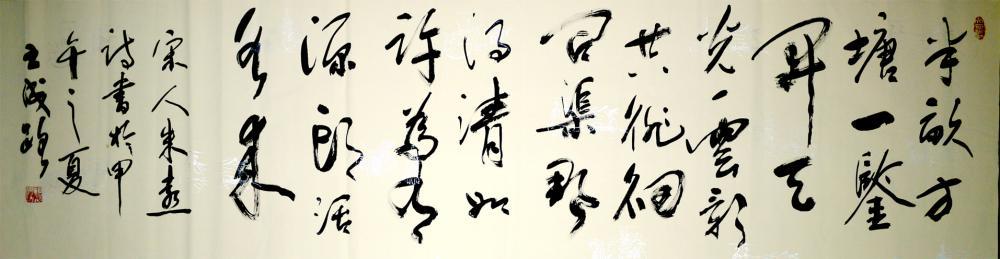 半畝方
塘一鑒
開天
光雲影
共徘徊
問渠那
得清如
許為有
源頭活
水来
宋人朱熹
詩書於甲
午之夏